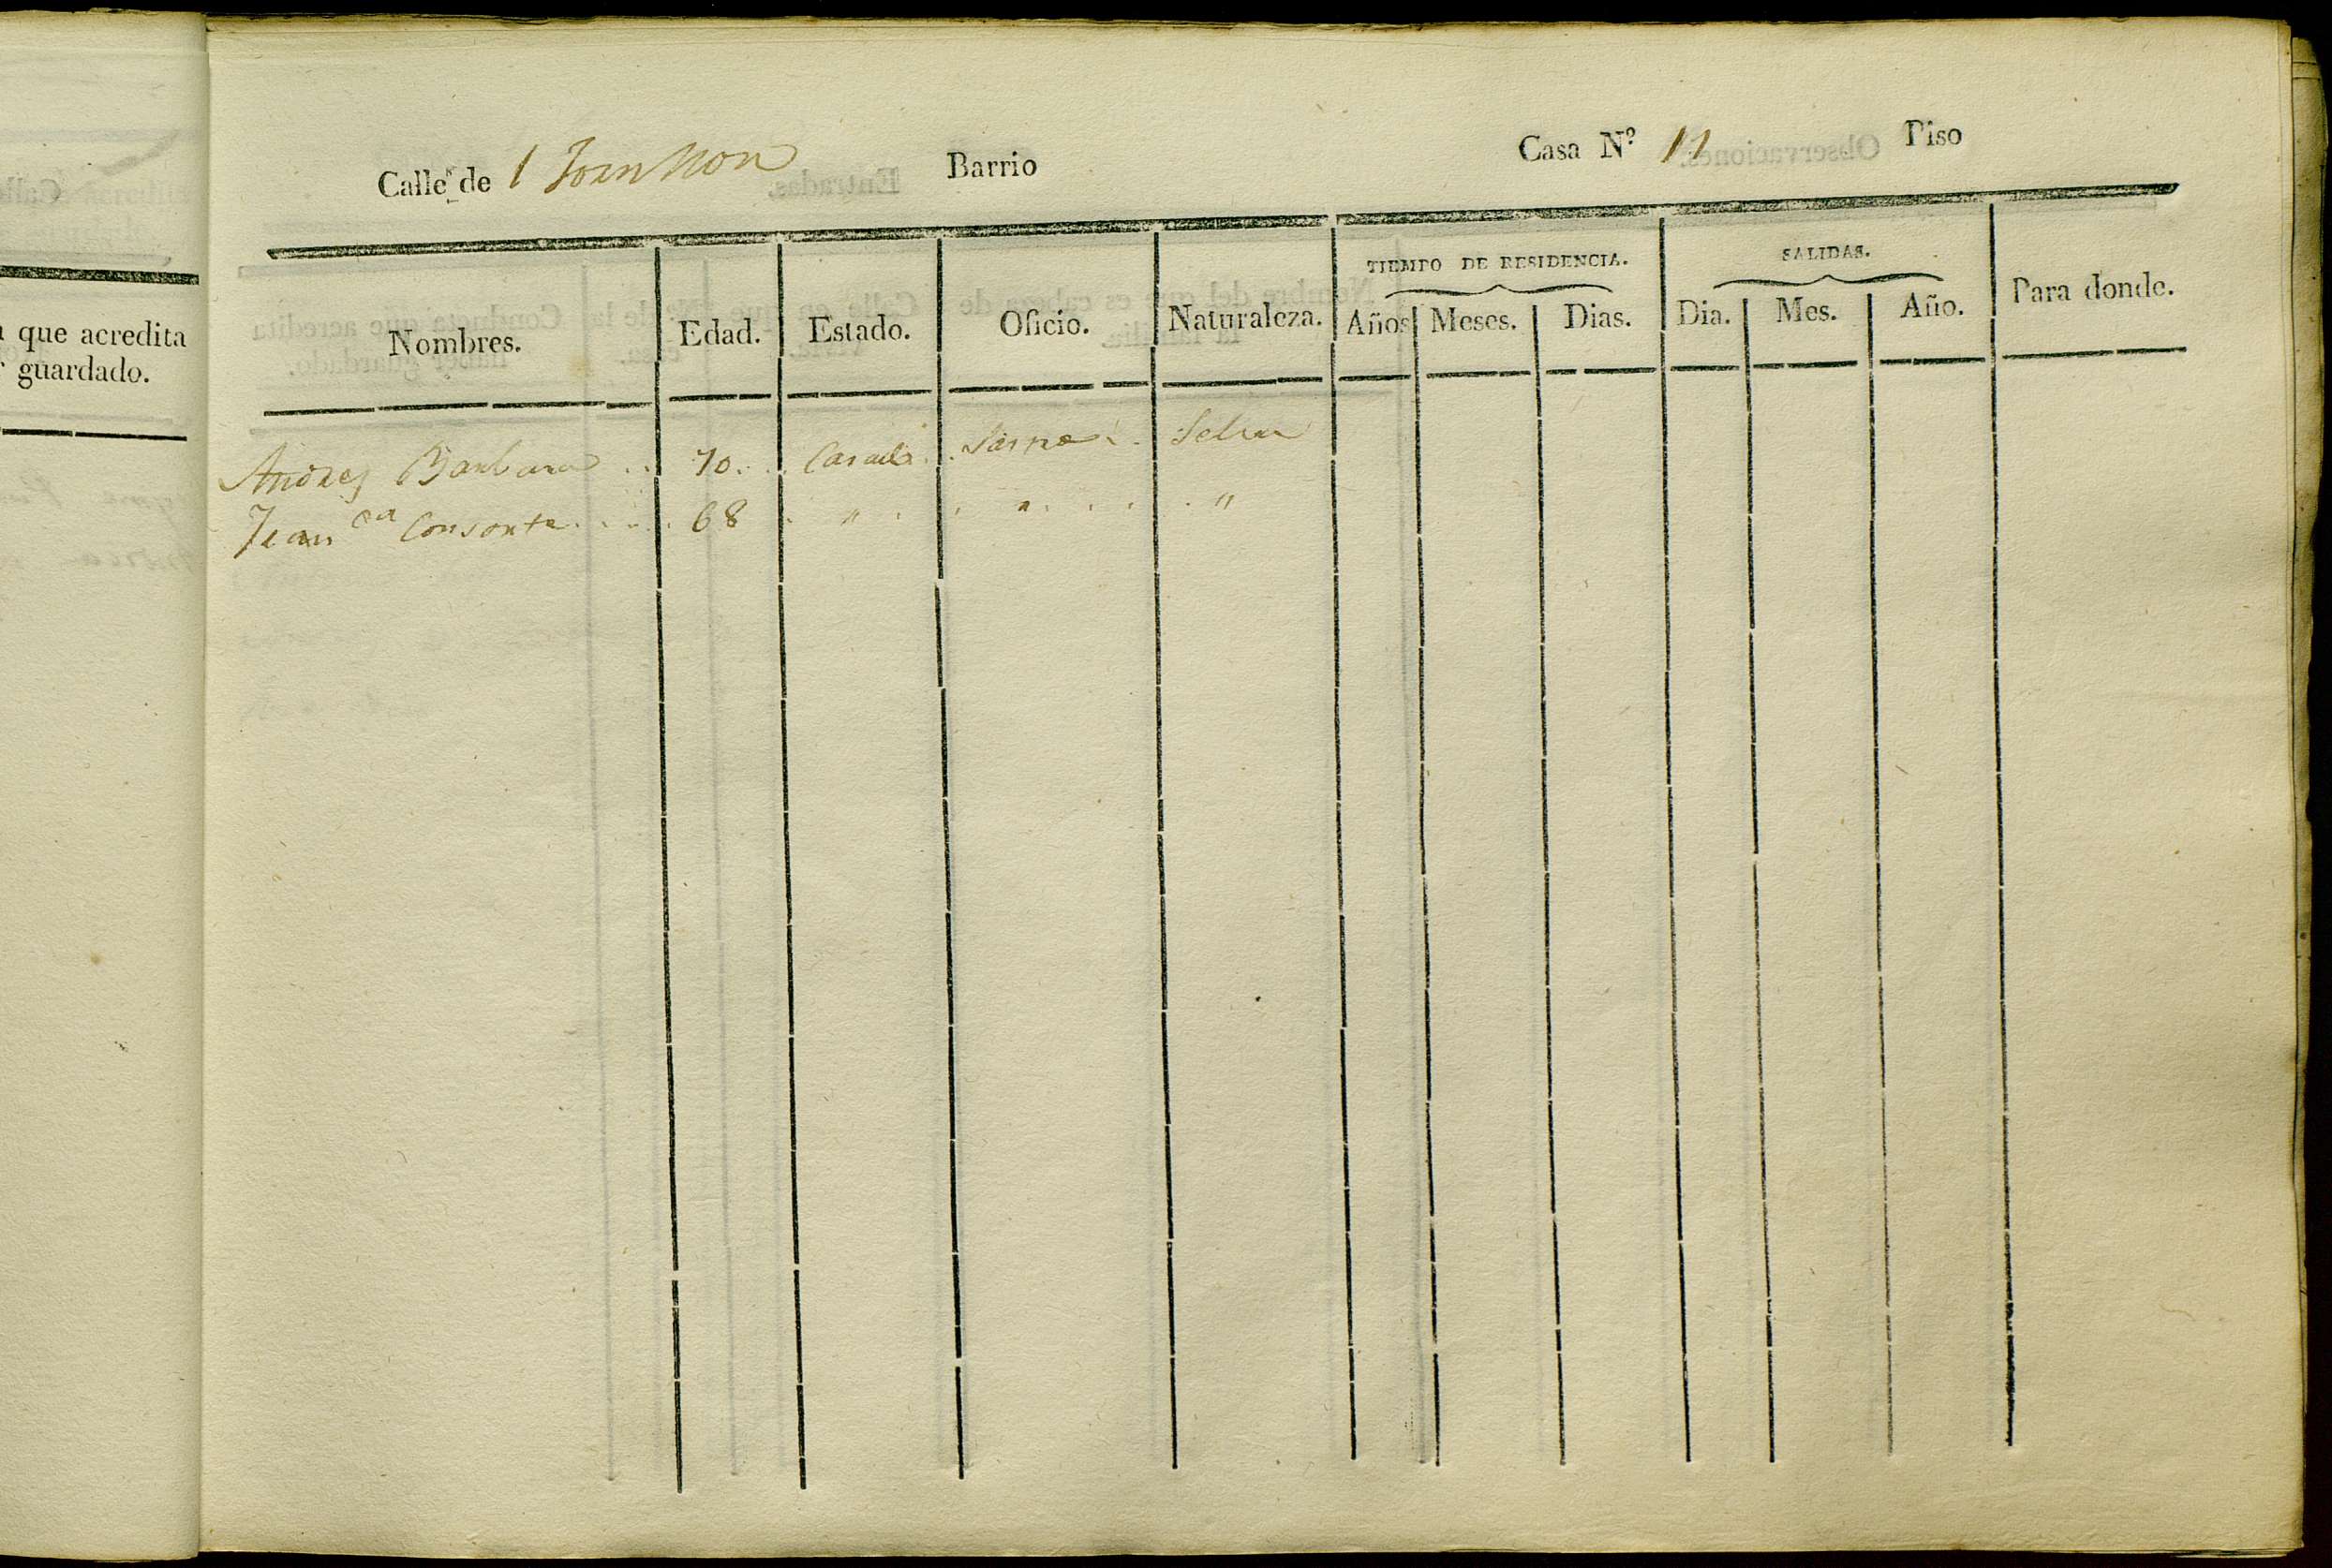 Calle de Barrio Casa Nº 11 Piso
TIEMPO DE RESIDENCIA. SALIDAS.
Nombres. Edad. Estado. Oficio. Naturaleza. Años Meses. Dias. Dia. Mes. Año. Para donde.
Andres Barbara 70 Casado Selva
Consorte 68 " " "
que acredita
guardado.